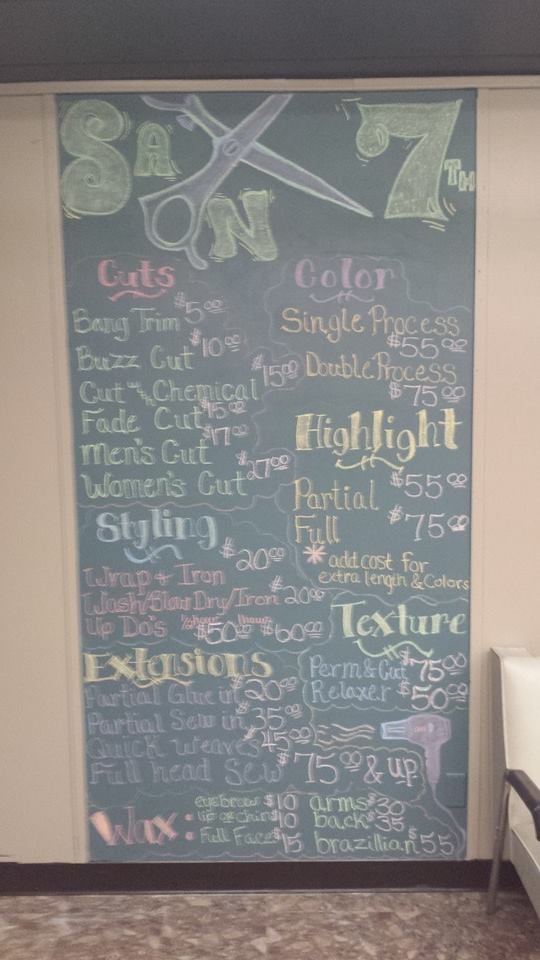 SA N 7TH
Cuts
Bang Trim $5.00
Buzz Cut $10.00
Cut w/ Chemical $15.00
Fade Cut $15.00
Men's Cut $17.00
Women's Cut $27.00
Styling
Wrap + Iron $20.00
Wash/Blow Dry/Iron $20.00
Up Do's ½ hour $50.00 1 hour $60.00
Extensions
Partial Glue in $20.00
Partial Sew in $35.00
Quick Weaves $45.00
Full head Sew $75.00 & up
Color
Single Process $55.00
Double Process $75.00
Highlight
Partial $55.00
Full $75.00
* add cost for
extra length & Colors
Texture
Perm & Cut $75.00
Relaxer $50.00
Wax:
eyebrow $10
lip or chin $10
Full Face $15
arms $30
back $35
brazillian $55